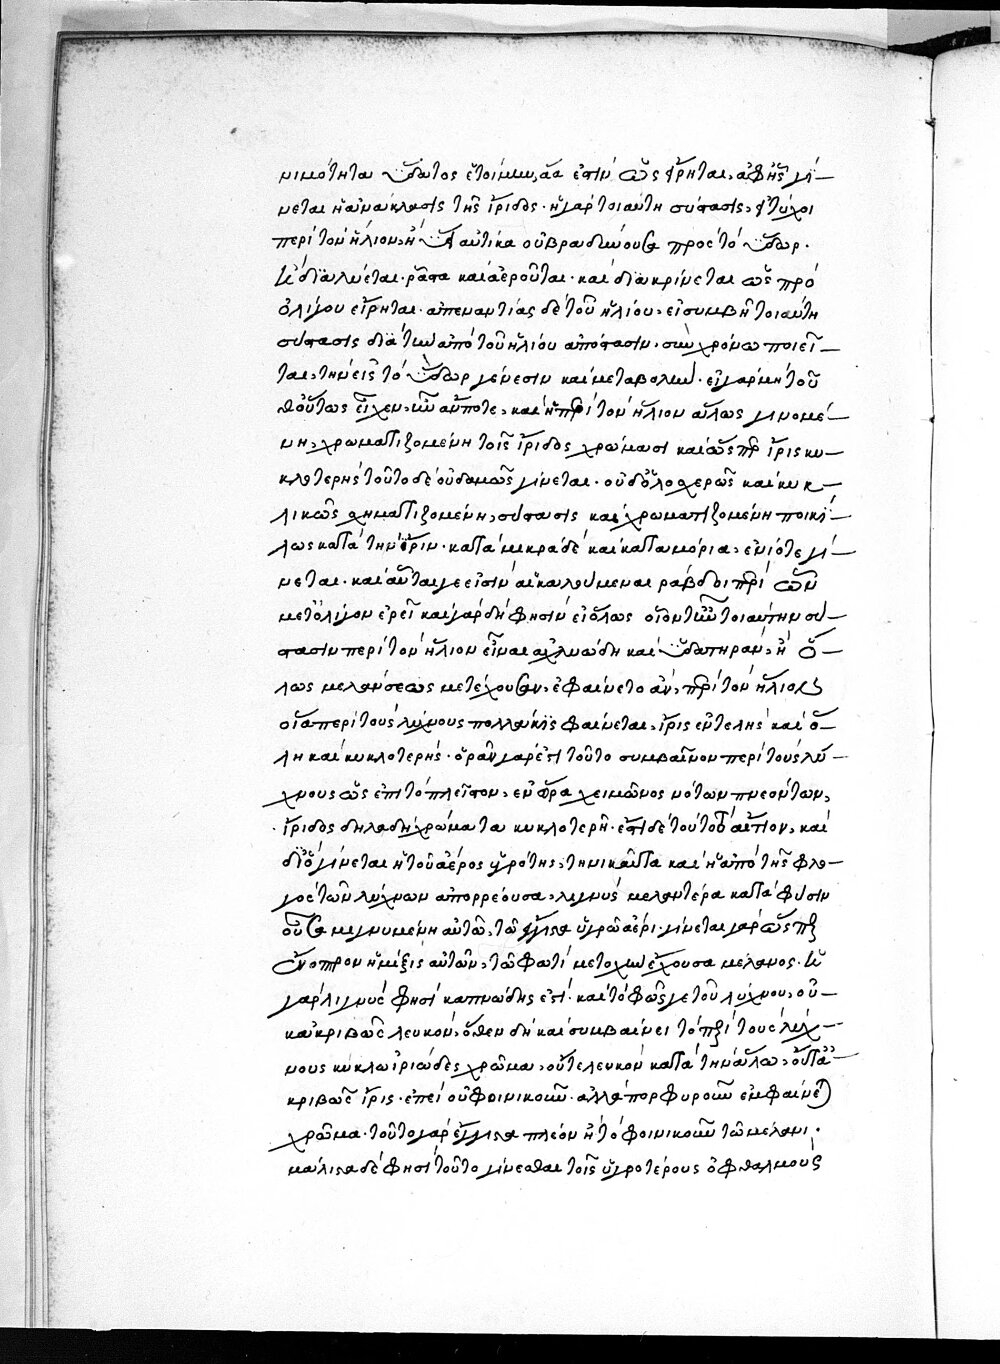 νιμότητα ὕδατος ἑτοίμως, ἅα ἐστὶν ὡς εἴρηται, ἀφ' ἧς γί-
νεται ἡ ἀνάκλασις τῆς ἴριδος· ἡ γὰρ τοιαύτη σύστασις, εἰ τύχοι
περὶ τὸν ἥλιον, ἢ αὐτίκα οὐ βραδύνουσα πρὸς τὸ ὕδωρ·
διαλύεται· ῥᾷστα καὶ ἀεροῦται· καὶ διακρίνεται ὡς πρὸ
ὀλίγου εἴρηται· ἀπεναντίας δὲ τοῦ ἡλίου, εἰ συμβῇ τοιαύτη
σύστασις διὰ τὴν ἀπὸ τοῦ ἡλίου ἀπόστασιν· σὺν χρόνω ποιεῖ-
ται, τὴν εἰς τὸ ὕδωρ γένεσιν καὶ μεταβολήν· εἰ γὰρ μὴ τοῦ
θ' οὕτως εἶχεν, ἦν ἄν ποτε, καὶ ἡ περὶ τὸν ἥλιον ἅλως γινομέ-
νη, χρωματιζομένη τοῖς ἴριδος χρώμασι καὶ ὥσπερ ἴρις κυ-
κλοτερής τοῦτο δὲ οὐδαμῶς γίνεται· οὐδ' ὁλοσχερῶς καὶ κυκ-
λικῶς σχηματιζομένη, σύστασις καὶ χρωματιζομένη ποικί-
λως κατὰ τὴν ἴριν· κατὰ μικρὰ δὲ καὶ κατὰ μόρια, ἐνίοτε γί-
νεται· καὶ αὗται γε εἰσὶν αἱ καλούμεναι ῥάβδοι περὶ ὧν
μετ' ὀλίγον ἐρεῖ καὶ γὰρ δὴ φησὶν εἰ ὅλως οἷον τ' ἦν τοιαύτην σύ-
στασιν περὶ τὸν ἥλιον εἶναι ἀχλυώδη καὶ ὑδατηράν, ἢ ὅ-
λως μελανσεως μετέχουσαν, ἐφαίνετο ἂν, περὶ τὸν ἥλιον
οἵα περὶ τοὺς λύχνους πολλάκις φαίνεται, ἴρις ἐντελὴς καὶ ὅ-
λη καὶ κυκλοτερής· ὁρᾶν γὰρ ἐστὶ τοῦτο συμβαῖνον περὶ τοὺς λύ-
χνους ὡς ἐπὶ τὸ πλεῖστον, ἐν ὥρα χειμῶνος νότων πνεόντων,
ἴριδος δηλαδὴ χρώματα κυκλοτερῆ· ἐστὶ δὲ τούτου αἴτιον, καὶ
διὸ γίνεται ἡ τοῦ ἀέρος ὑγρότης, τηνικαῦτα καὶ ἡ ἀπὸ τῆς φλο-
γὸς τῶν λύχνων ἀπορρέουσα, λιγνὺς μελαντέρα κατὰ φύσιν
οὖσα μιγνυμένη αὐτῶ, τῶ ἔγγιστα ὑγρῶ ἀέρι· γίνεται γὰρ ὥσπερ
ἔνοπτρον ἡ μίξις αὐτῶν, τῶ φωτὶ μετοχὴν ἔχουσα μέλανος· ἡ
γὰρ λιγνὺς φησὶ καπνώδης ἐστί· καὶ τὸ φῶς γε τοῦ λύχνου, οὐ-
κ ἀκριβῶς λευκόν, ὅθεν δὴ καὶ συμβαίνει τὸ περὶ τοὺς λύχ-
νους κύκλω ἰριῶδες χρῶμα, οὔτε λευκὸν κατὰ τὴν ἅλω, οὔτε ἀ-
κριβῶς ἴρις· ἐπεὶ οὐ φοινικοῦν· ἀλλὰ πορφυροῦν ἐμφαίνεται
χρῶμα· τοῦτο γὰρ ἔγγιστα πλέον ἢ τὸ φοινικοῦν τῶ μέλανι·
μάλιστα δὲ φησὶ τοῦτο γίνεσθαι τοῖς ὑγροτέρους ὀφθαλμοὺς